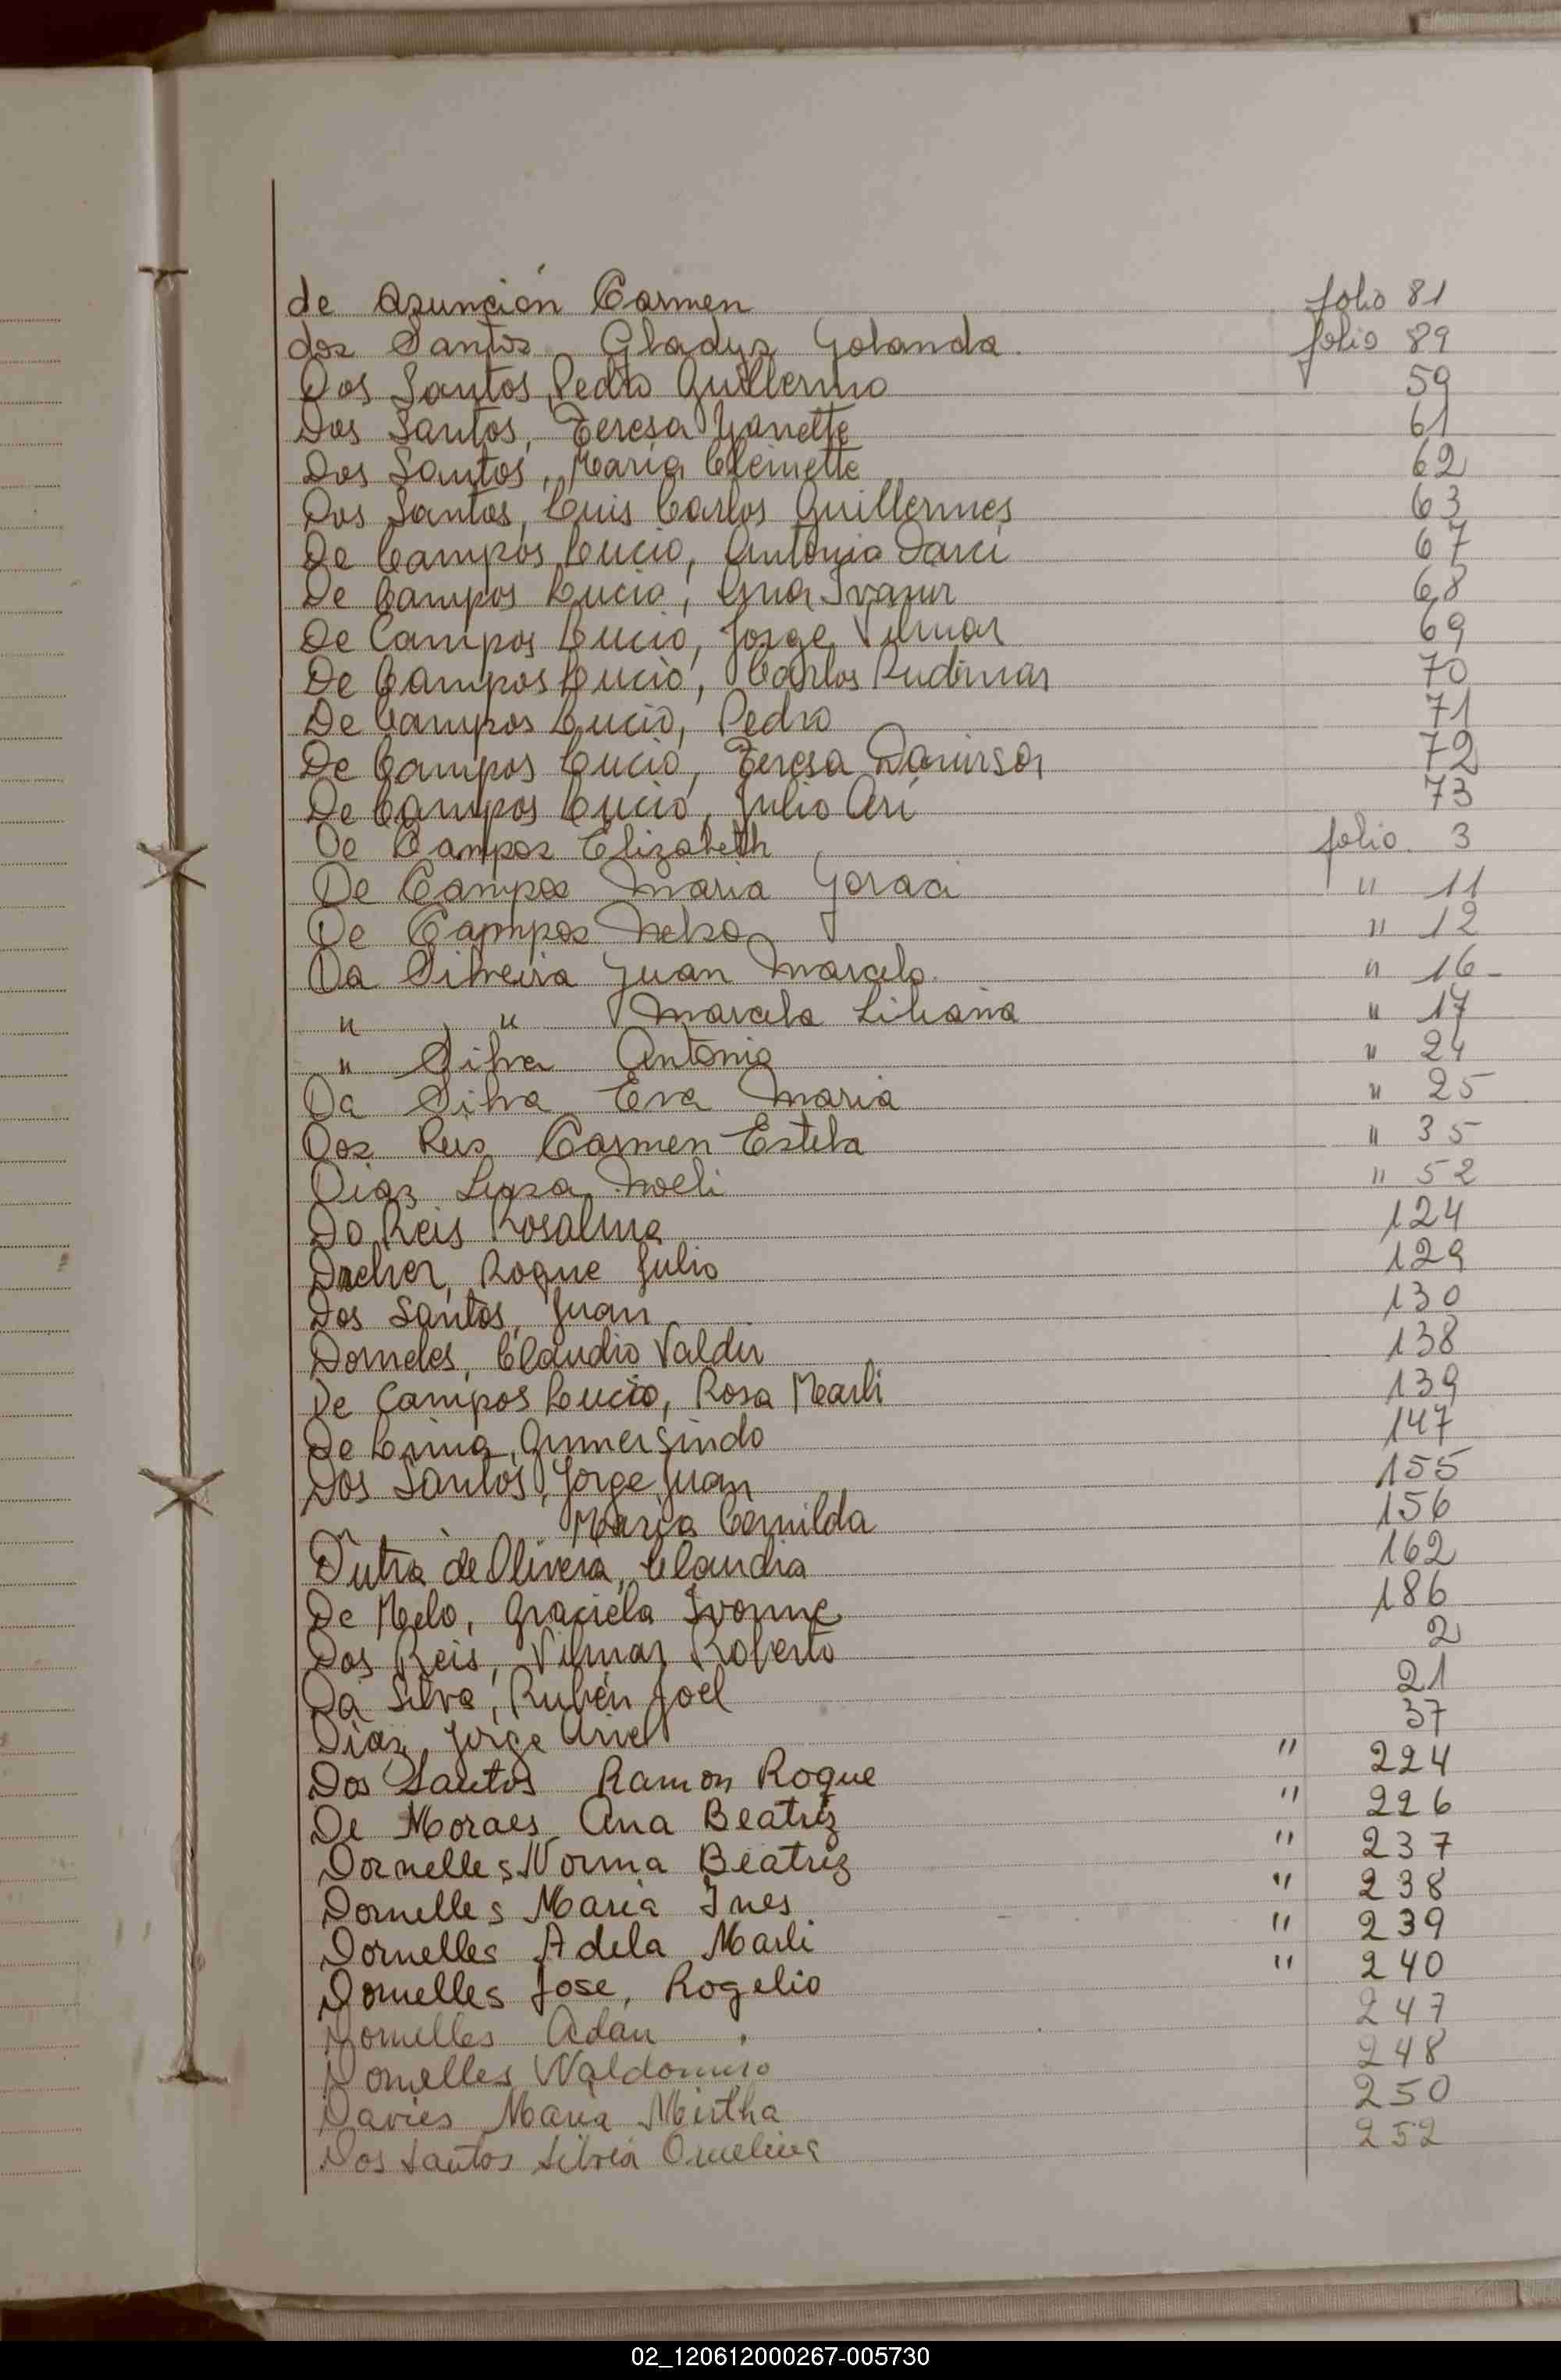 de Asunción Carmen folio 81
dos Santos Gladys Yolanda folio 89
Dos Santos, Pedro Guillermo 59
Dos Santos, Teresa Yanette 61
Dos Santos, María Cleinette 62
Dos Santos, Luis Carlos Guillermes 63
De Campos Lucio, Antonia Darci 67
De Campos Lucio, 68
De Campos Lucio, Jorge Vilmar 69
De Campos Lucio, Carlos Rudimar 70
De Campos Lucio, Pedro 71
De Campos Lucio, Teresa 72
De Campos Lucio, Julio Ari 73
De Campos Elizabeth folio 3
De Campos Maria Yoraci " 11
De Campos Nelso " 12
Da Silveira Juan Marcelo " 16
" " Marcela Liliana " 17
" Silva Antonio " 24
Da Silva Eva Maria " 25
Dos Reis Carmen Estela " 35
Diaz Luysa Noeli " 52
Do Reis Rosalina 124
Roque Julio 129
Dos Santos, Juan 130
Dorneles, Claudio Valdir 138
De Campos Lucio, Rosa Marli 139
De Lima, Gumersindo 147
Dos Santos, Jorge Juan 155
María 156
Dutra de Olivera, Claudia 162
De Melo, Graciela Ivonne 186
Dos Reis, Vilmar Roberto 2
Da Silva, Rubén Joel 21
Díaz, Jorge Ariel 37
Dos Santos Ramon Roque " 224
De Moraes Ana Beatriz " 226
Dornelles Norma Beatriz " 237
Dornelles Maria Ines " 238
Dornelles Adela Marli " 239
Dornelles Jose, Rogelio " 240
Dornelles Adan 247
Dornelles Waldomiro 248
Davies Maria Mirtha 250
Dos Santos Silvia 252
02_120612000267-005730